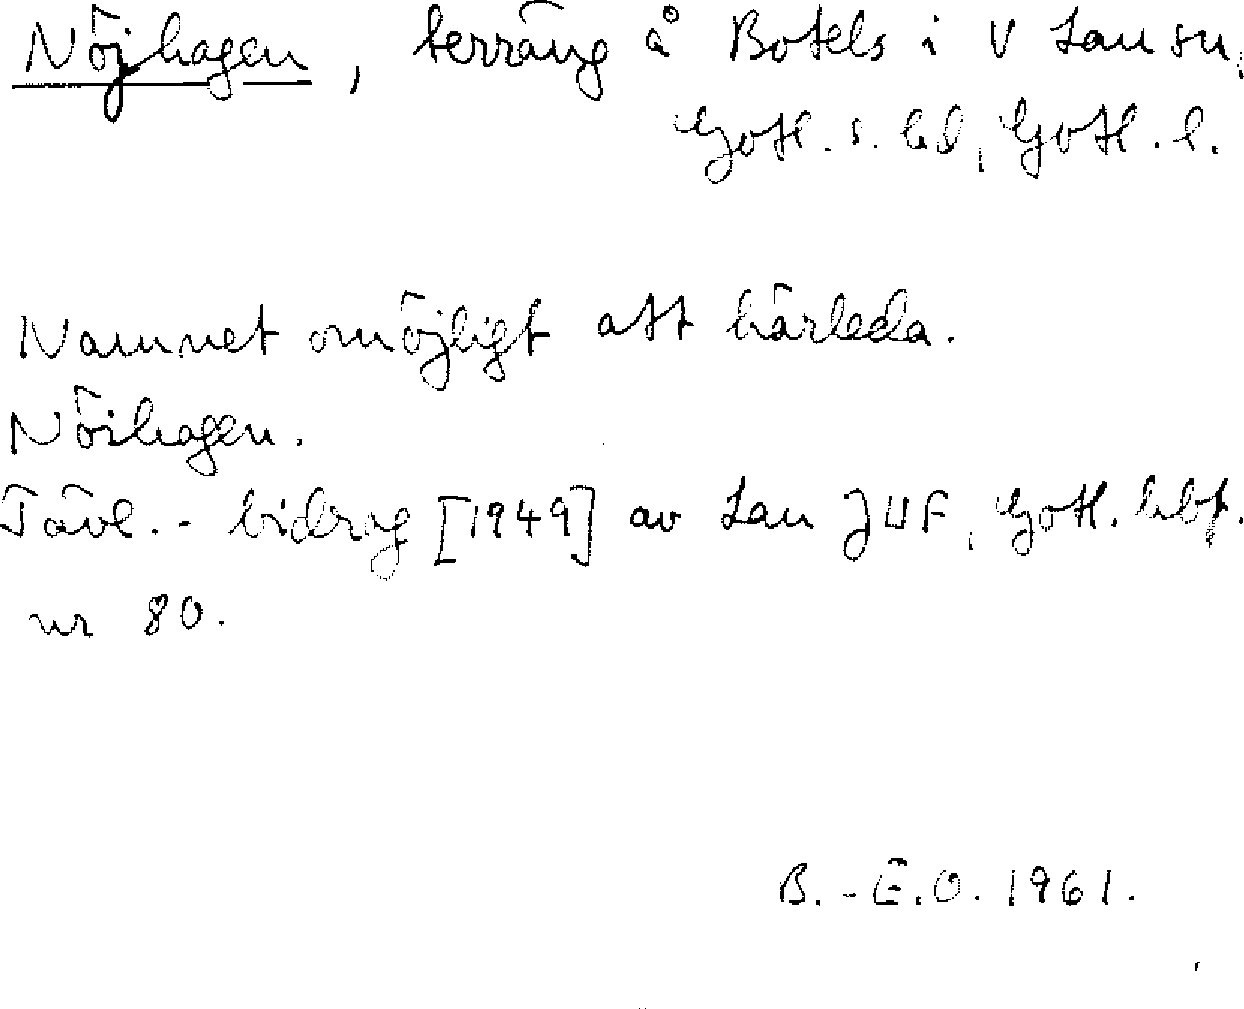 Nöjhagen, terräng å Botels i V Lau sn,
Gotl. s. hd, Gotl. l.
Namnet omöjligt att härleda.
Nöihagen.
Tävl.-bidrag [1949] av Lau JUF, Gotl. hbf.
nr 80.
B.-E.O. 1961.